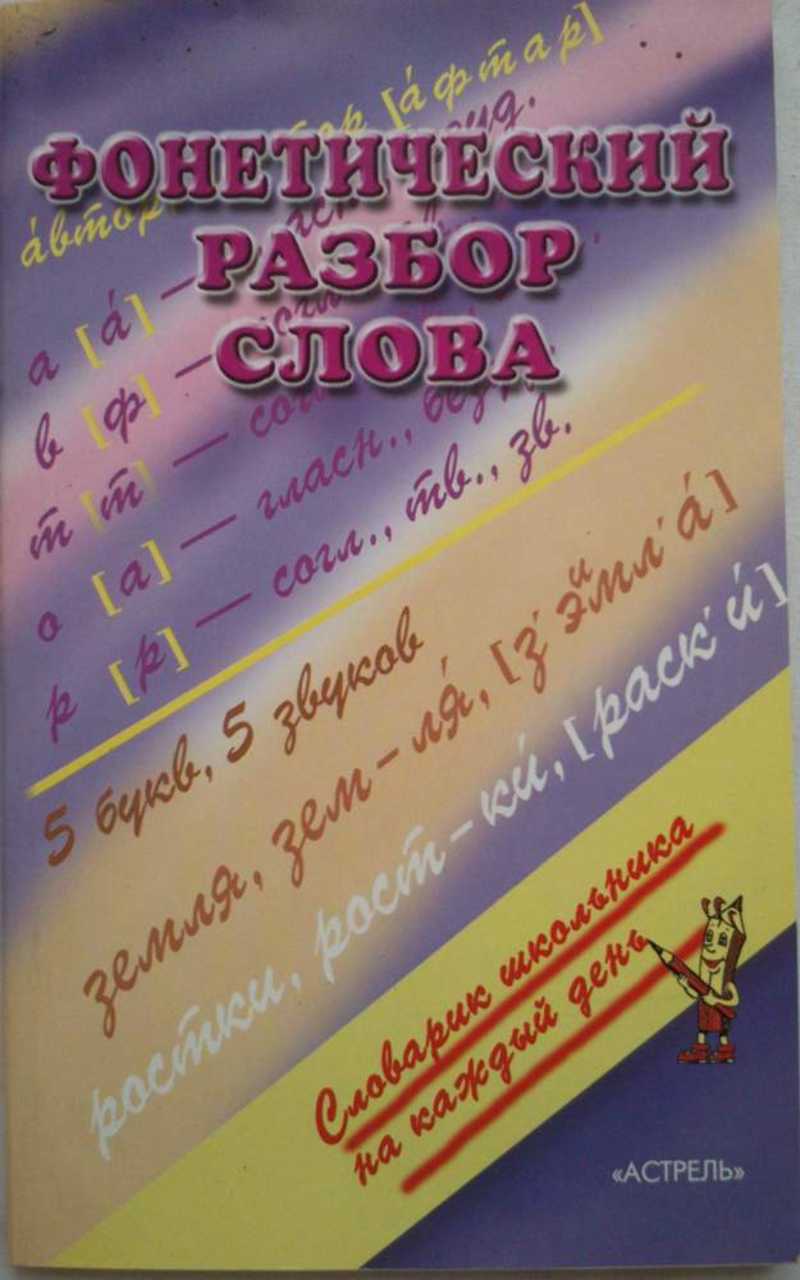 ФОНЕТИЧЕСКИЙ
РАЗБОР
СЛОВА
а́втор [а́фтар]
а [а́] —
в [ф] — согл
т [т] — согл
о [а] — гласн., безуд.
р [р] — согл., тв., зв.
5 букв, 5 звуков
земля, зем-ля́, [з'эⁱмл'а́]
ростки, рост-ки́, [раск'и́]
Словарик школьника
на каждый день
«АСТРЕЛЬ»